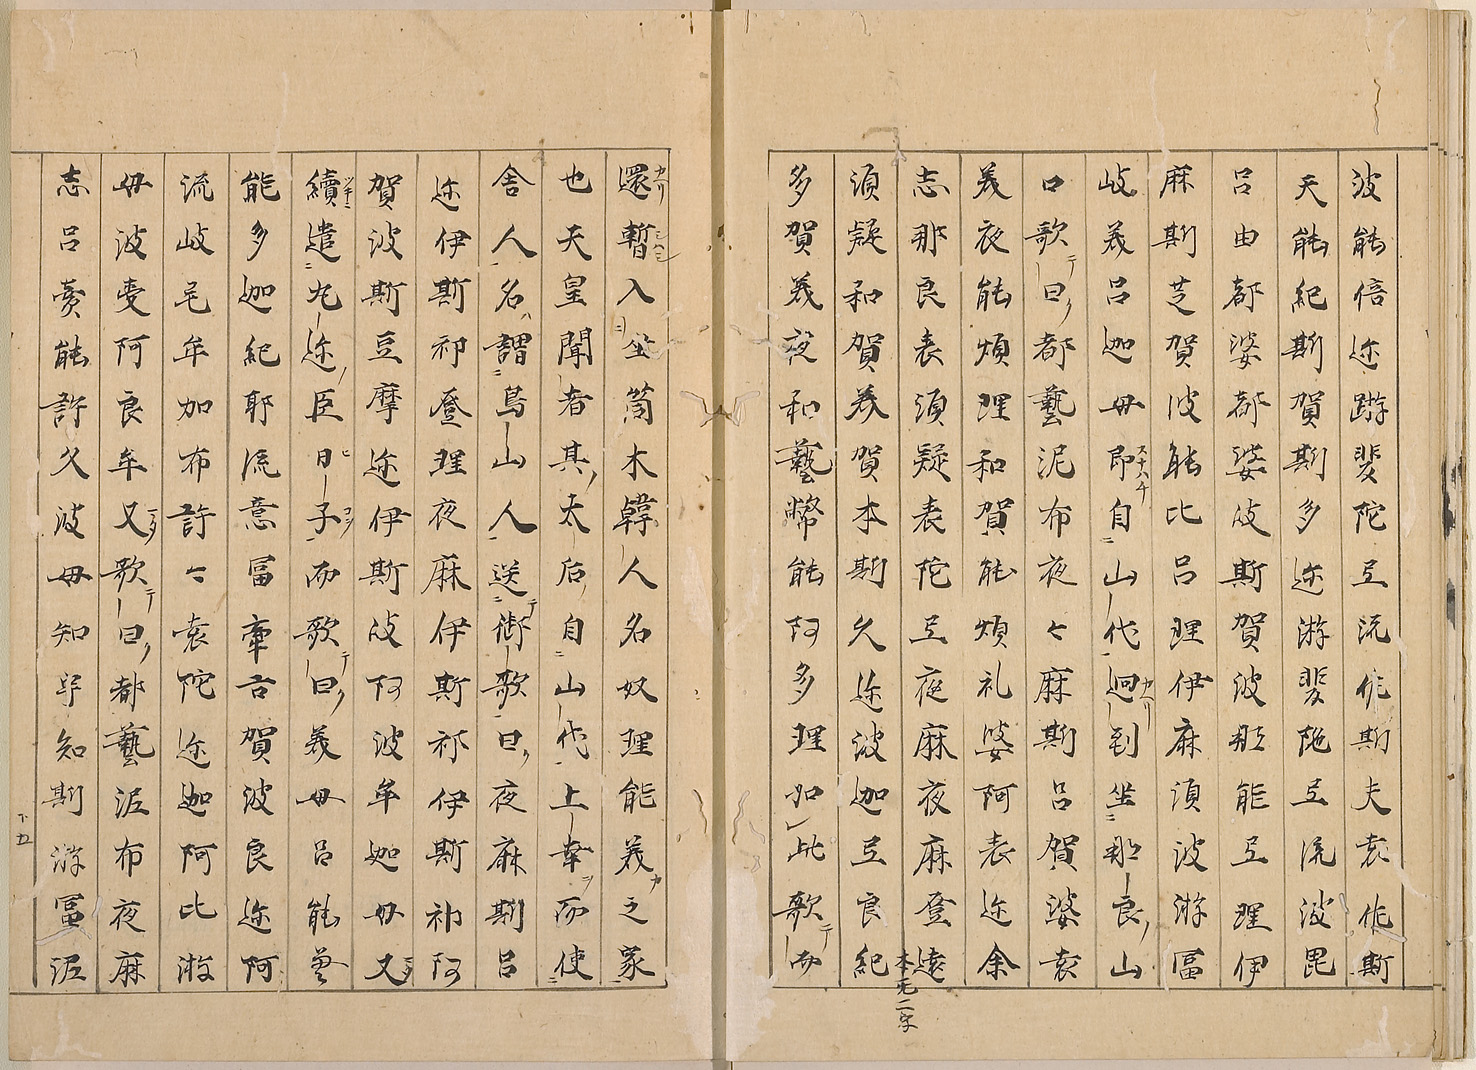 波能倍迩蹴斐陀弖流佐斯夫袁佐斯
夫能紀斯賀斯多迩游斐陀弖流波毘
呂由都婆都婆岐斯賀波那能弖理伊
麻斯芝賀波能比呂理伊麻湏波游冨
岐義呂迦母即自山代迴到坐那良山
口歌曰都藝泥布夜々麻斯呂賀婆袁
義夜能煩理和賀能煩礼婆阿袁迩余
志那良袁湏疑袁陀弖夜麻夜麻登遠
本无二字
湏疑和賀義賀本斯久迩波迦豆良紀
多賀義夜和藝幣能阿多理如此歌而
還暫入坐筒木韓人名奴理能義之家
也天皇聞者其太后自山代上幸而使
舎人名謂鳥山人送御歌曰夜麻斯呂
迩伊斯祁登理夜麻伊斯祁伊斯祁阿
賀波斯豆摩迩伊斯波阿波牟迦母又
續遣丸迩臣口子而歌曰義母呂能曽
能多迦紀那流意冨韋古賀波良迩阿
流岐毛牟加布許々袁陀迩迦阿比游
母波受阿良牟又歌曰都藝泥布夜麻
志呂賣能許久波母知宇知斯游冨泥
下五